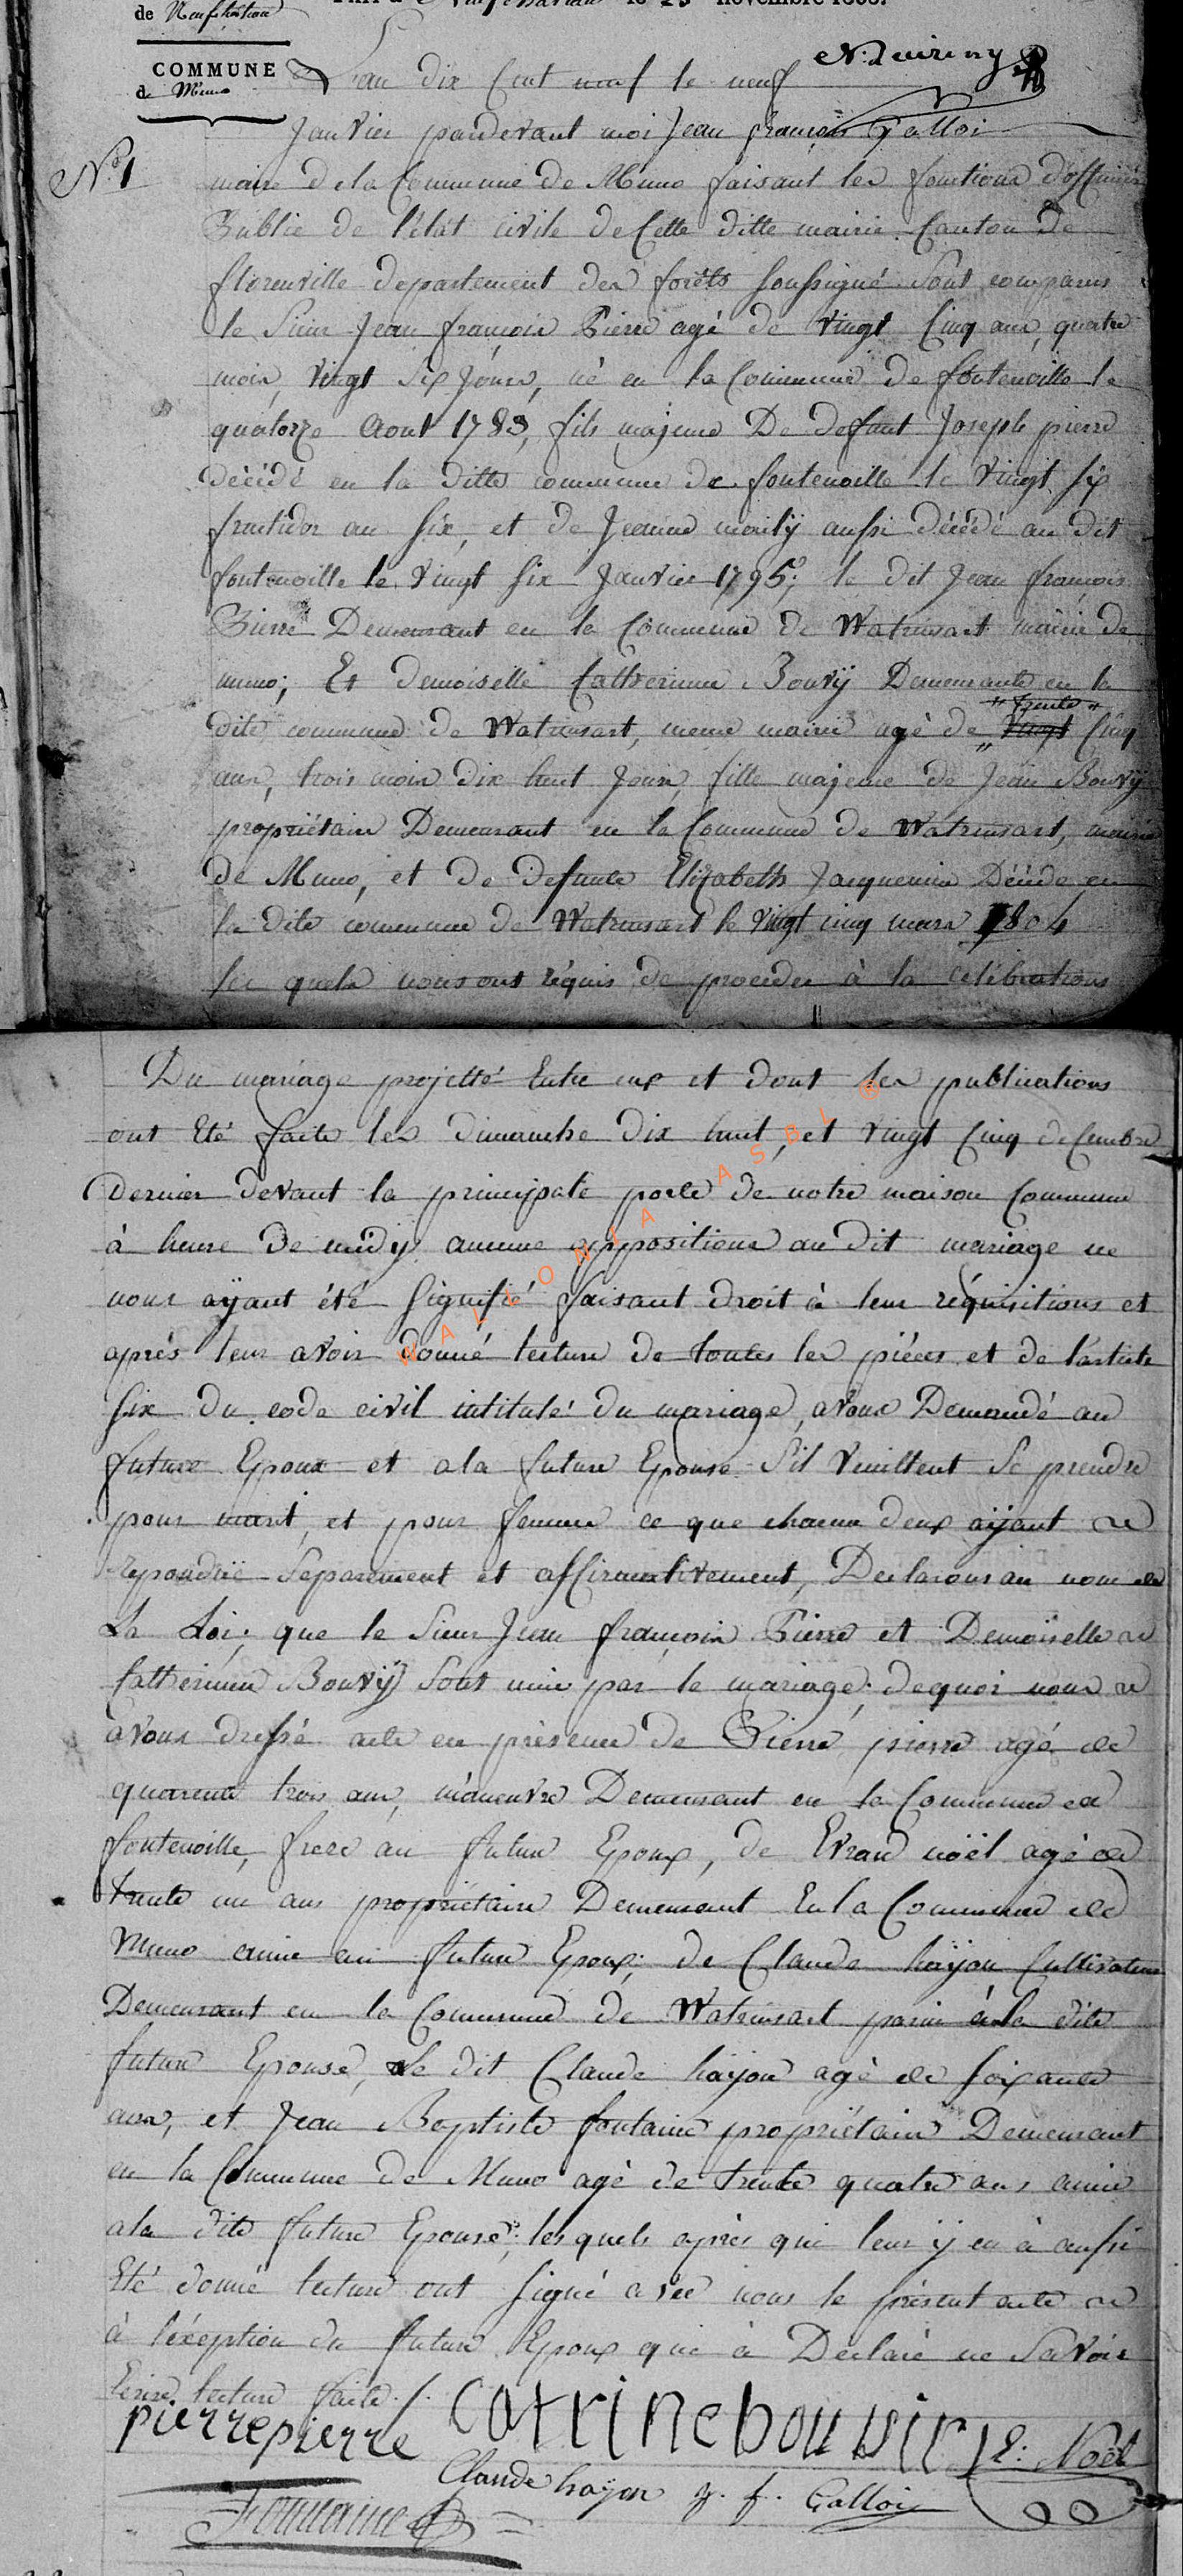 de Neufchateau le 23 novembre 1808.
COMMUNE
de Muno
N. Quiriny
L'an dix Cent neuf le neuf
Janvier pardevant moi Jean françois Galloi
N° 1
maire De la Commune de Muno faisant les fonctions d'officier
Public de l'état civile de Cette ditte mairie Canton de
florenville departement des forêts soussigné Sont comparus
le Sieur Jean françois Pierre agé de vingt Cinq ans, quatre
mois, vingt six Jours, né en la Commune de fontenoille le
quatorze Aout 1783, fils majeure De defunt Joseph pierre
décédé en la ditte commune de fontenoille le vingt six
fructidor an six, et de Jeanne mailÿ aussi décédé au dit
fontenoille le vingt six Janvier 1795; le dit Jean françois
Pierre Demeurant en la Commune de Watrinsart mairie de
muno; Et demoiselle Catherinne Bouvÿ Demeurante en la
" trente "
dite commune de Watrinsart, meme mairie agé de " vingt Cinq
ans, trois mois dix huit Jours, fille majeure de Jean Bouvÿ
propriétaire Demeurant en la Commune de Watrinsart, mairie
de Muno, et de defunte Elizabeth Jacquemin Décédé en
la dite commune de Watrinsart le vingt cinq mars 1804
les quels nous ont réquis de proceder à la célébrations
Du mariage projetté Entre eux et dont les publications
ont Eté faite les dimanche dix huit, et vingt Cinq deCembre
Dernier devant la principale porte de notre maison Commune
à heure De midÿ aucune oppositions au dit mariage ne
nous aÿant été Signifié faisant droit à leur réquisitions et
après leur avoir donné lecture de toutes les pièces et de l'article
six du code civil intitulé du mariage, avons Demandé au
future Epoux et a la future Epouse S'il veuillent Se prendre
pour mari, et pour femme ce que chacun deux aÿant
repondue Separement et affirmativement, Declarons au nom de
La Loi; que le Sieur Jean françois Pierre et Demoiselle
Catherinne Bouvÿ Sont unie par le mariage; dequoi nous
avons dressé acte en présence de Pierre pierre agé de
quarente trois ans, manœuvre Demeurant en la Commune de
fontenoille, frere au futur Epoux, de Evrard noël agé de
trente un ans propriétaire Demeurant En la Commune de
Muno amie au future Epoux; de Claude haÿon Cultivateur
Demeurant en la Commune de Watrinsart parin à la dite
future Epouse, le dit Claude haÿon agé de soixante
ans, et Jean Baptiste fontaine propriétaire Demeurant
en la Commune de Muno agé de trente quatre ans amie
a la dite future Epouse; lesquels après qui leur ÿ en à aussi
Eté donné lecture ont signé avec nous le présent acte
à l'éxeption du future Epoux qui à Déclaré ne Savoir
Ecrire lecture faite ./.
pierrepierre catrinebouvier E: Noël
Claude haÿon J. f. Galloi
Fontaine
WALLONIA ASBL ®